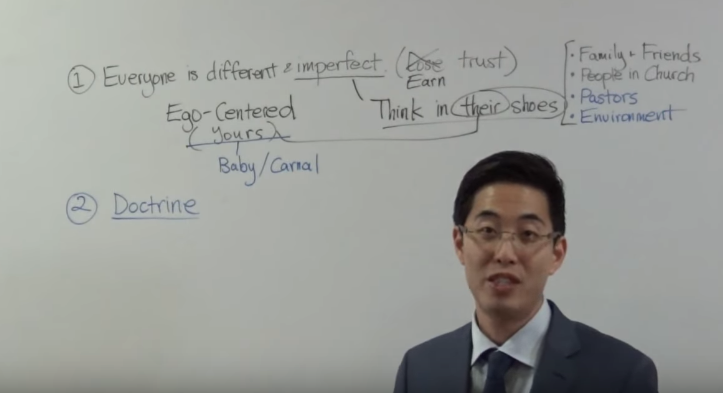 ① Everyone is different & imperfect. (Lose trust)
Earn
Ego-Centered
(Yours)
Baby/Carnal
Think in their shoes
· Family + Friends
· People in Church
· Pastors
· Environment
② Doctrine